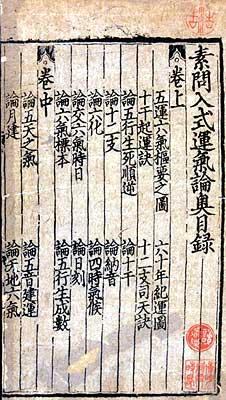 素問入式運氣論奧目錄
卷上
五運六氣樞要之圖 六十年紀運圖
十干起運訣 十二支司天訣
論五行生死順逆 論十干
論十二支 論納音
論六化 論四時氣候
論交六氣時日 論日刻
論六氣標本 論五行生成數
卷中
論五天之氣 論五音建運
論月建 論天地六氣